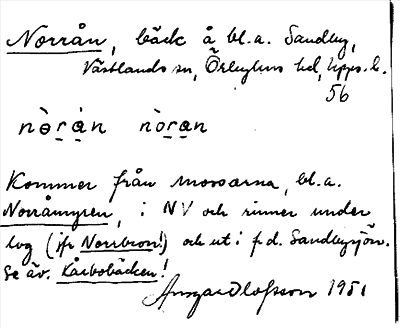 Norrån, bäck å bl.a. Sandby,
Västlands sn, Örbyhus hd, Upps. l.
56
nòrån nòran
Kommer från mossarna, bl.a.
Norråmyren, i NV och rinner under
lvg (jfr Norrbron!) och ut i f.d. Sandbysjön.
Se äv. Kårbobäcken!
Olofsson 1951